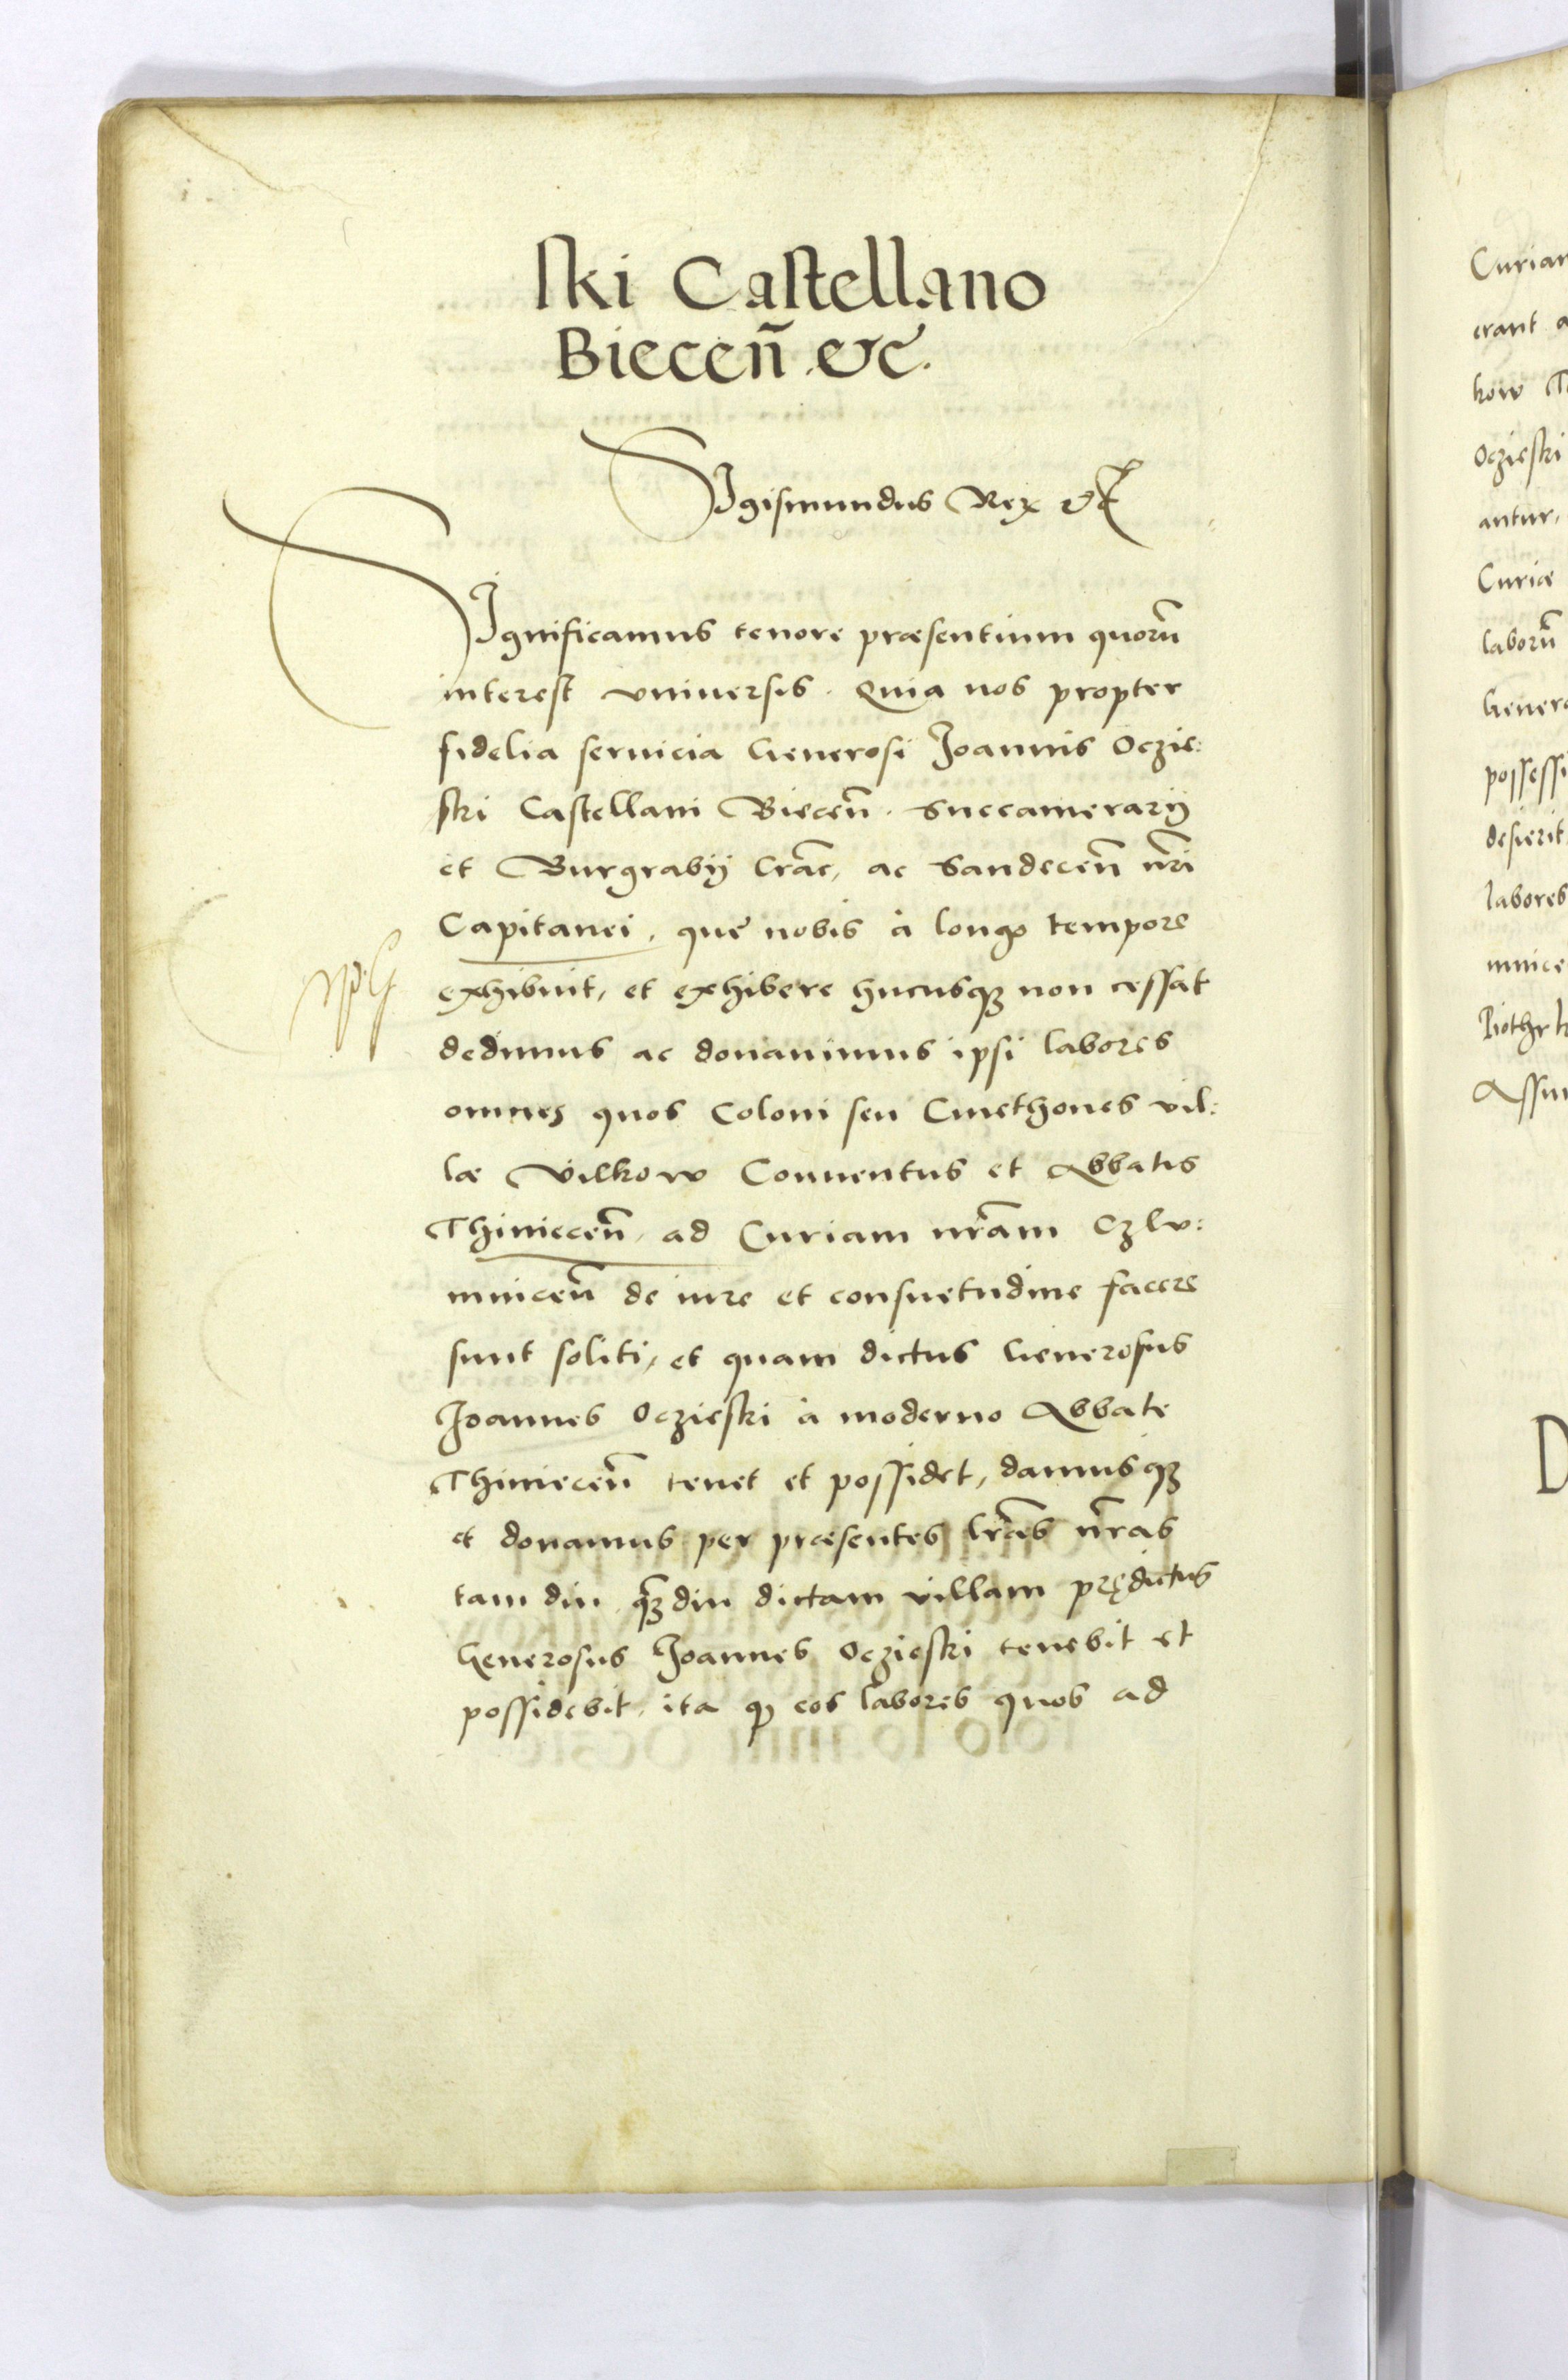 ski Castellano
Biecen̄ etc.
Sigismundus Rex etc
Significamus tenore præsentium quorū
interest vniuersis. Quia nos propter
fidelia seruicia Generosi Joannis Oczie:
ski Castellani Biecen̄. Succamerarij
et Burgrabij Crac̄, ac Sandecen̄ nr̄i
Capitanei, que nobis à longo tempore
exhibuit, et exhibere hucusq3 non cessat
dedimus ac donauimus ipsi labores
omnes quos Coloni seu Cmethones vil:
læ Vilkow Conuentus et Abbatis
Thiniecen̄, ad Curiam nr̄am Czlu:
minicen̄ de iure et consuetudine facere
sunt soliti, et quam dictus Generosus
Joannes Oczieski à moderno Abbate
Thiniecen̄ tenet et possidet, damusq3
et donamus per præsentes lr̄as nr̄as
tam diu q̄3diu dictam villam prędictus
Generosus Joannes Oczieski tenebit et
possidebit, ita q3 eos labores quos ad
Curiæ
laborū
labores
antur,
erant
possessi
desierit